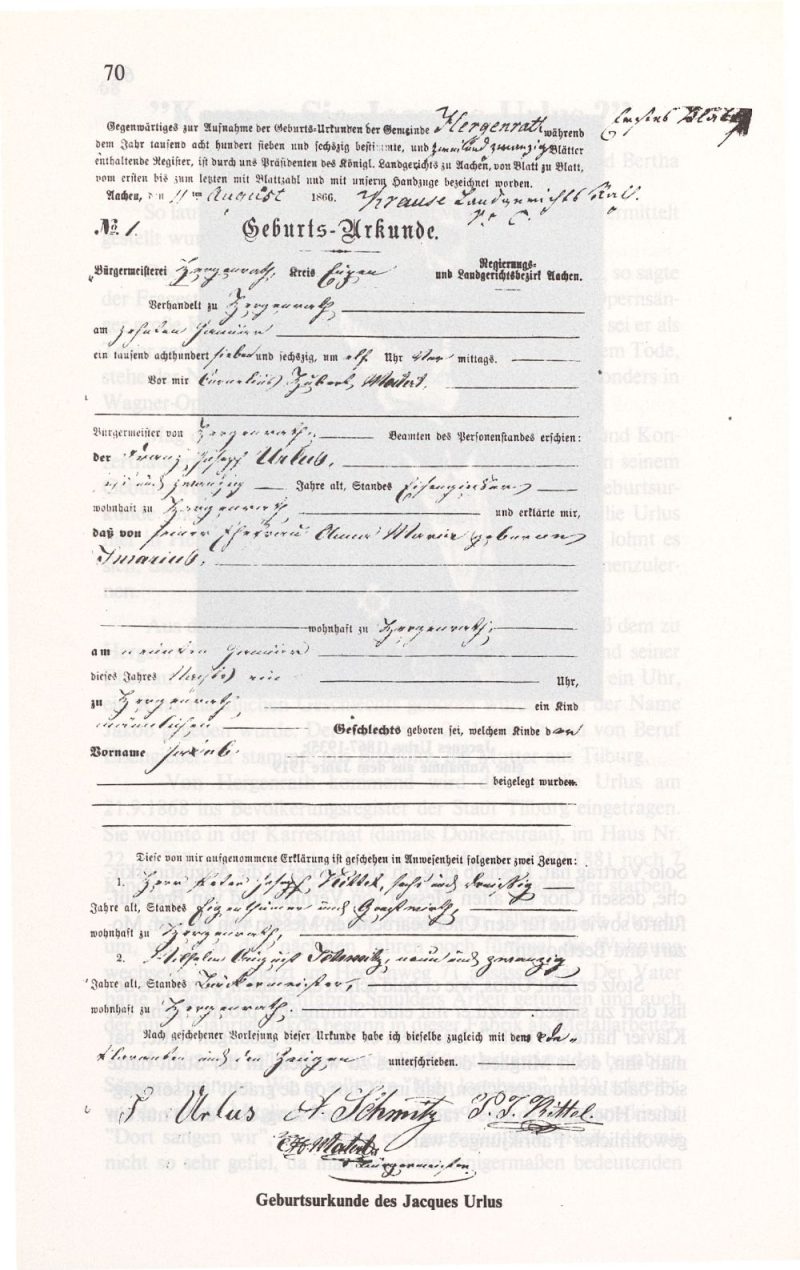 70
Gegenwärtiges zur Aufnahme der Geburts-Urkunden der Gemeinde Hergenrath während Erstes Blatt
dem Jahr tausend acht hundert sieben und sechszig bestimmte, und zwei und zwanzig Blätter
enthaltende Register, ist durch uns Präsidenten des Königl. Landgerichts zu Aachen, von Blatt zu Blatt,
vom ersten bis zum letzten mit Blattzahl und mit unserm Handzuge bezeichnet worden.
Aachen, den 11ten August 1866. Krause Landgerichts Rath.
No. 1. Geburts-Urkunde.
Bürgermeisterei Hergenrath, Kreis Eupen Regierungs-
und Landgerichtsbezirk Aachen.
Verhandelt zu Hergenrath
am zehnten Januar
ein tausend achthundert sieben und sechszig, um elf Uhr Vor mittags.
Vor mir Cornelius Hubert
Bürgermeister von Hergenrath Beamten des Personenstandes erschien:
der Franz Joseph Urlus,
und zwanzig Jahre alt, Standes Eisengießer
wohnhaft zu Hergenrath und erklärte mir,
daß von seiner Ehefrau Anna Maria geborene
Jmarius,
wohnhaft zu Hergenrath,
am neunten Januar
dieses Jahres Nachts ein Uhr,
zu Hergenrath ein Kind
männlichen Geschlechts geboren sei, welchem Kinde der
Vorname Jacob
beigelegt wurden.
Diese von mir aufgenommene Erklärung ist geschehen in Anwesenheit folgender zwei Zeugen:
1. Herr Peter Joseph Kittel, sechs und dreissig
Jahre alt, Standes Eigenthümer und Gastwirth,
wohnhaft zu Hergenrath,
2. Wilhelm August Schmitz, neun und zwanzig
Jahre alt, Standes Bäckermeister,
wohnhaft zu Hergenrath.
Nach geschehener Vorlesung dieser Urkunde habe ich dieselbe zugleich mit dem De-
klaranten und den Zeugen unterschrieben.
F. Urlus A. Schmitz P. J. Kittel
Bürgermeister
Geburtsurkunde des Jacques Urlus